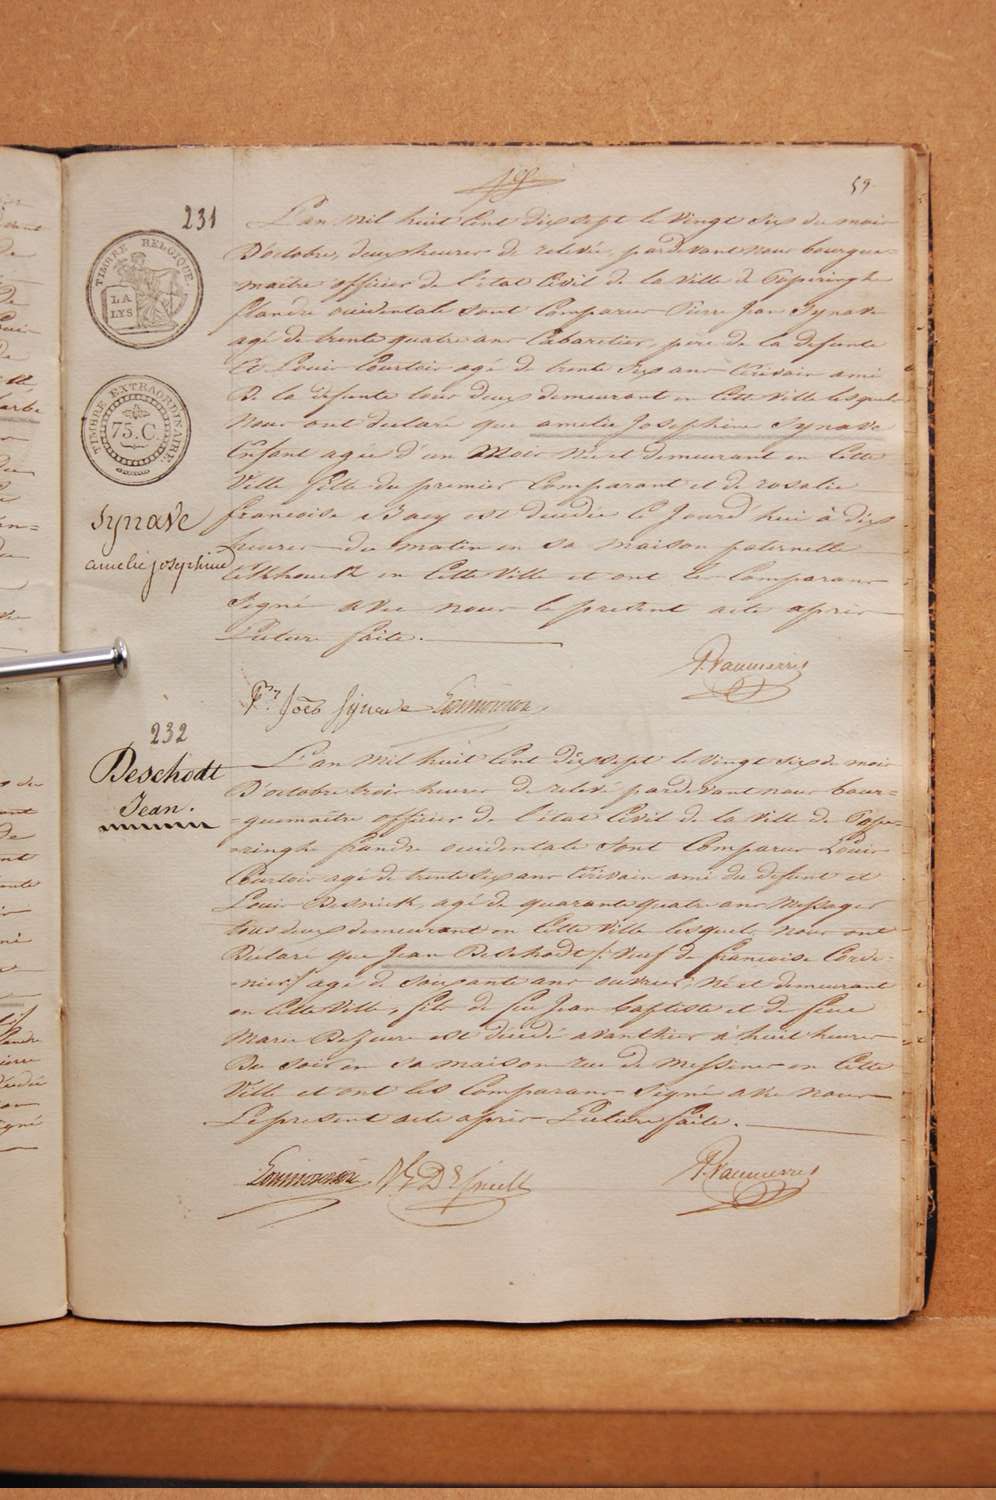 59
231
L'an mil huit Cent dix sept le vingt six du mois
D'octobre, deux heures de relevée, pardevant nous bourgue-
maitre officier de l'état Civil de la ville de Poperinghe
flandre occidentale sont Comparus Pierre Jean Synave
agé de trente quatre ans Cabaretier, pere de la defunte
Et Louis Courtois agé de trente six ans Ecrivain ami
De la defunte tous deux demeurant en Cette Ville lesquels
Nous ont declaré que amelie Josephine Synave
Enfant agée d'un Mois née et demeurant en Cette
Ville fille du premier Comparant et de rosalie
francoise Baey est decedée le Jourd'hui à dix
heures du matin en sa maison paternelle
en Cette Ville et ont les Comparans
Signé avec nous le present acte après
Lecture faite.
TIMBRE BELGIQUE.
LA
LYS
TIMBRE EXTRAORDINAIRE.
75.C.
Synave
amelie josephine
232
Deschodt
Jean.
L'an mil huit Cent dix sept le vingt six du mois
D'octobre trois heures de relevé pardevant nous bour-
-guemaitre officier de l'état Civil de la ville de Pope-
-ringhe flandre occidentale sont Comparus Louis
Courtois agé de trente six ans Ecrivain ami du defunt et
Louis Desnick, agé de quarante quatre ans Messager
tous deux demeurant en Cette Ville lesquels nous ont
Déclaré que Jean Deschodt /: veuf de francoise Corde-
-nier :/ agé de Soixante ans ouvrier, Né et demeurant
en Cette Ville, fils de feu Jean baptiste et de feue
Marie est décédé avanthier à huit heures
Du Soir en sa maison rue de Messines en Cette
Ville et ont les Comparans Signé avec nous
Le present acte après Lecture faite.